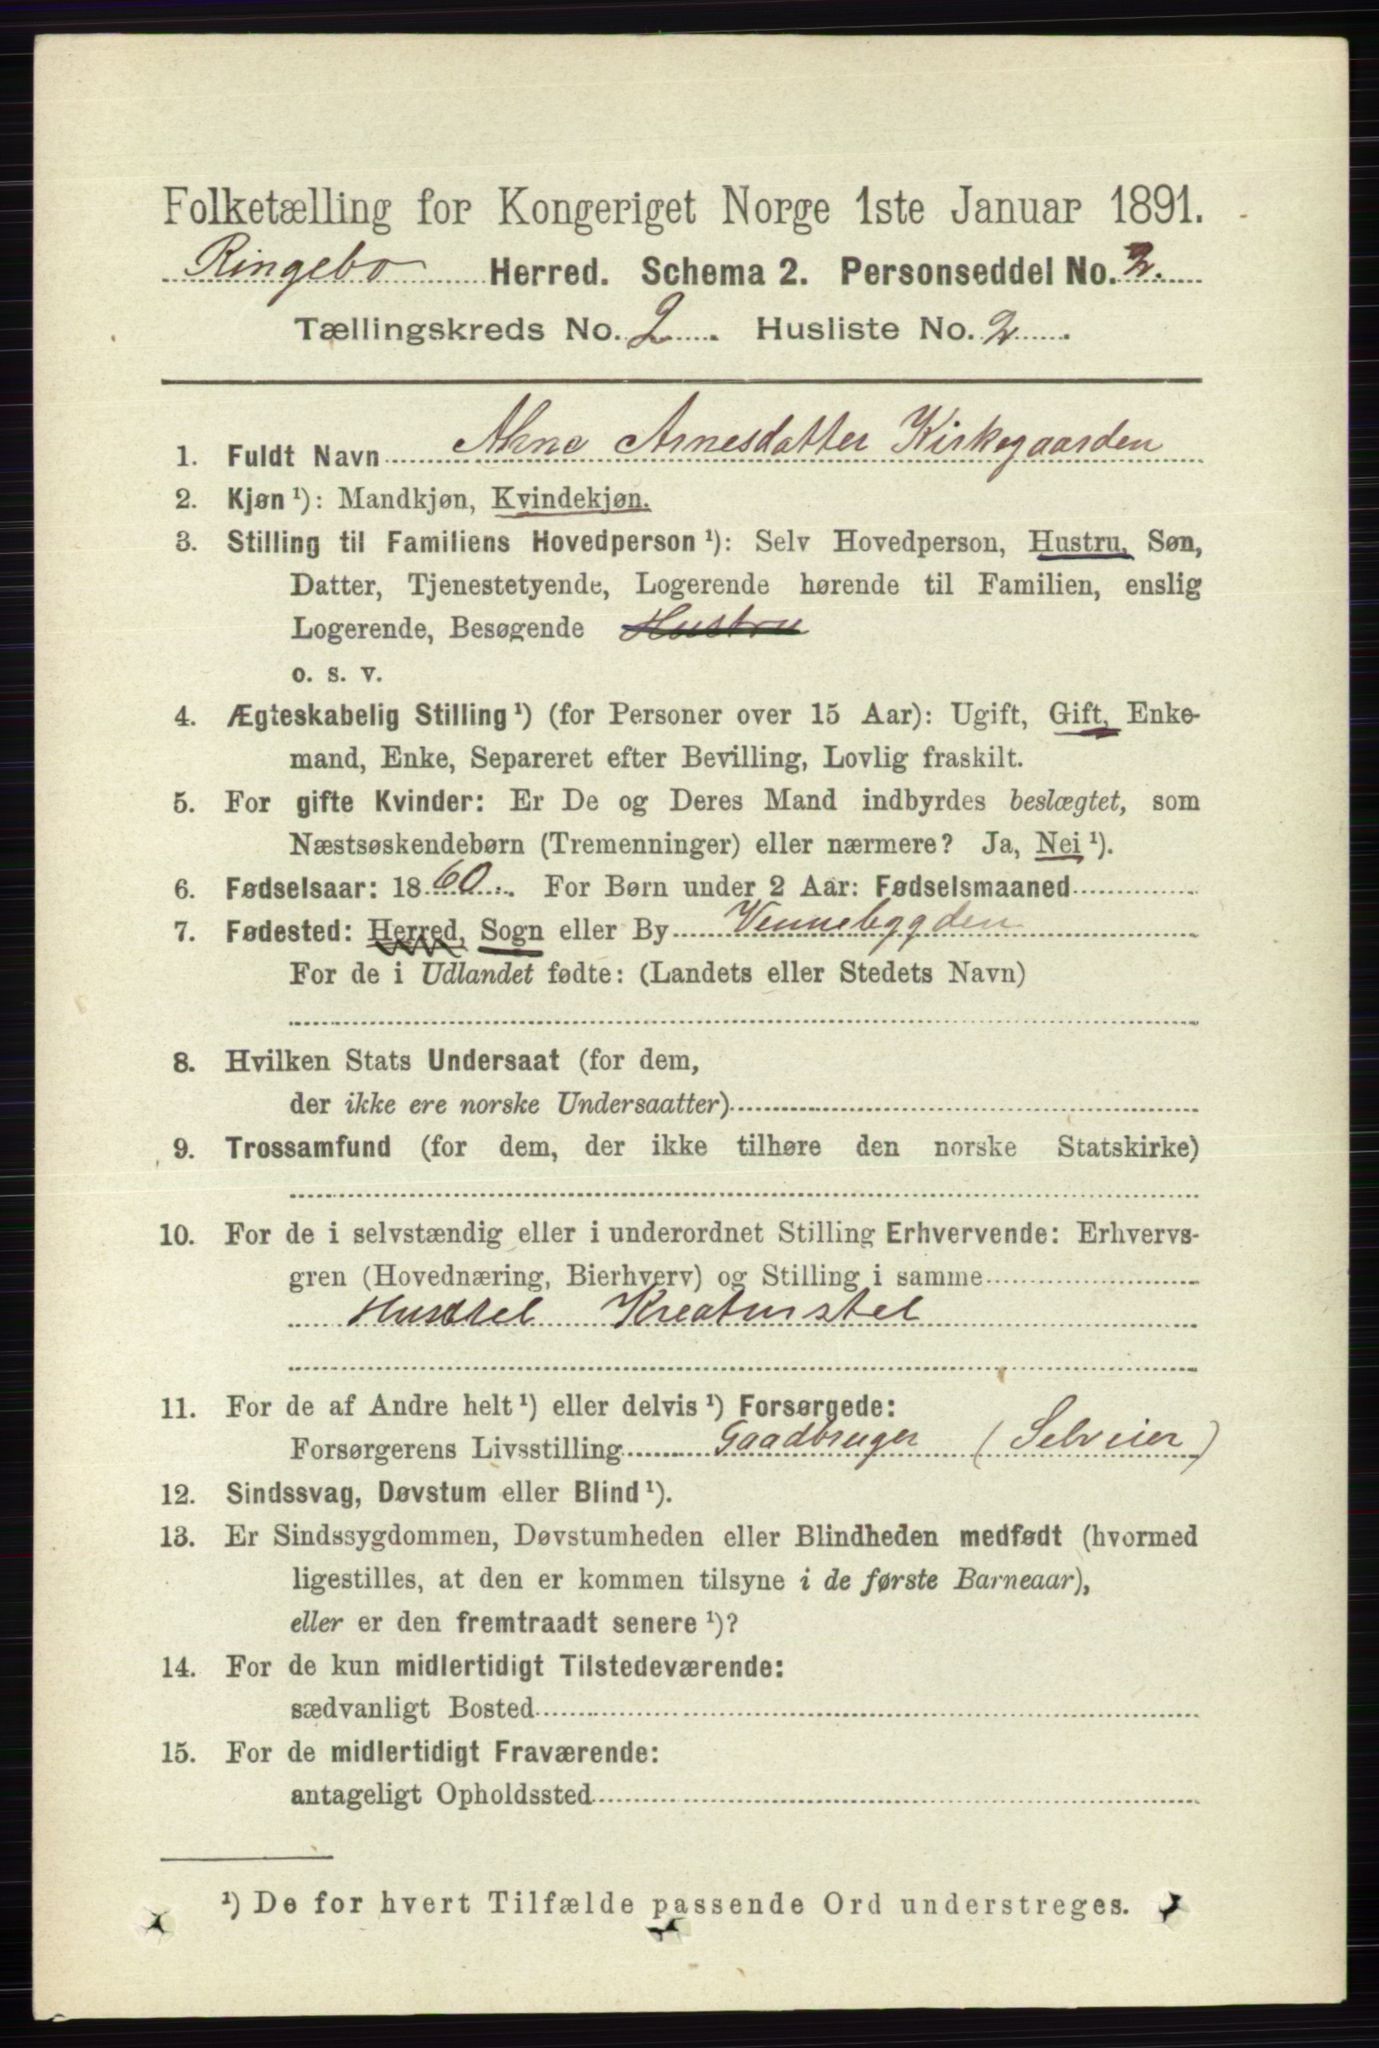 Folketælling for Kongeriget Norge 1ste Januar 1891.
Ringebo Herred. Schema 2. Personseddel No. 2.
Tællingskreds No. 2. Husliste No. 2.
1. Fuldt Navn Anne Arnesdatter Kirkegaarden
2. Kjøn ¹): Mandkjøn, Kvindekjøn.
3. Stilling til Familiens Hovedperson ¹): Selv Hovedperson, Hustru, Søn,
Datter, Tjenestetyende, Logerende hørende til Familien, enslig
Logerende, Besøgende Hustru
o. s. v.
4. Ægteskabelig Stilling ¹) (for Personer over 15 Aar): Ugift, Gift, Enke-
mand, Enke, Separeret efter Bevilling, Lovlig fraskilt.
5. For gifte Kvinder: Er De og Deres Mand indbyrdes beslægtet, som
Næstsøskendebørn (Tremenninger) eller nærmere? Ja, Nei ¹).
6. Fødselsaar: 1860. For Børn under 2 Aar: Fødselsmaaned
7. Fødested: Herred, Sogn eller By Vennebygden
For de i Udlandet fødte: (Landets eller Stedets Navn)
8. Hvilken Stats Undersaat (for dem,
der ikke ere norske Undersaatter)
9. Trossamfund (for dem, der ikke tilhøre den norske Statskirke)
10. For de i selvstændig eller i underordnet Stilling Erhvervende: Erhvervs-
gren (Hovednæring, Bierhverv) og Stilling i samme
Husstel Kreaturstel
11. For de af Andre helt ¹) eller delvis ¹) Forsørgede:
Forsørgerens Livsstilling Gaadbruger (Selveier)
12. Sindssvag, Døvstum eller Blind ¹).
13. Er Sindssygdommen, Døvstumheden eller Blindheden medfødt (hvormed
ligestilles, at den er kommen tilsyne i de første Barneaar),
eller er den fremtraadt senere ¹)?
14. For de kun midlertidigt Tilstedeværende:
sædvanligt Bosted
15. For de midlertidigt Fraværende:
antageligt Opholdssted
¹) De for hvert Tilfælde passende Ord understreges.